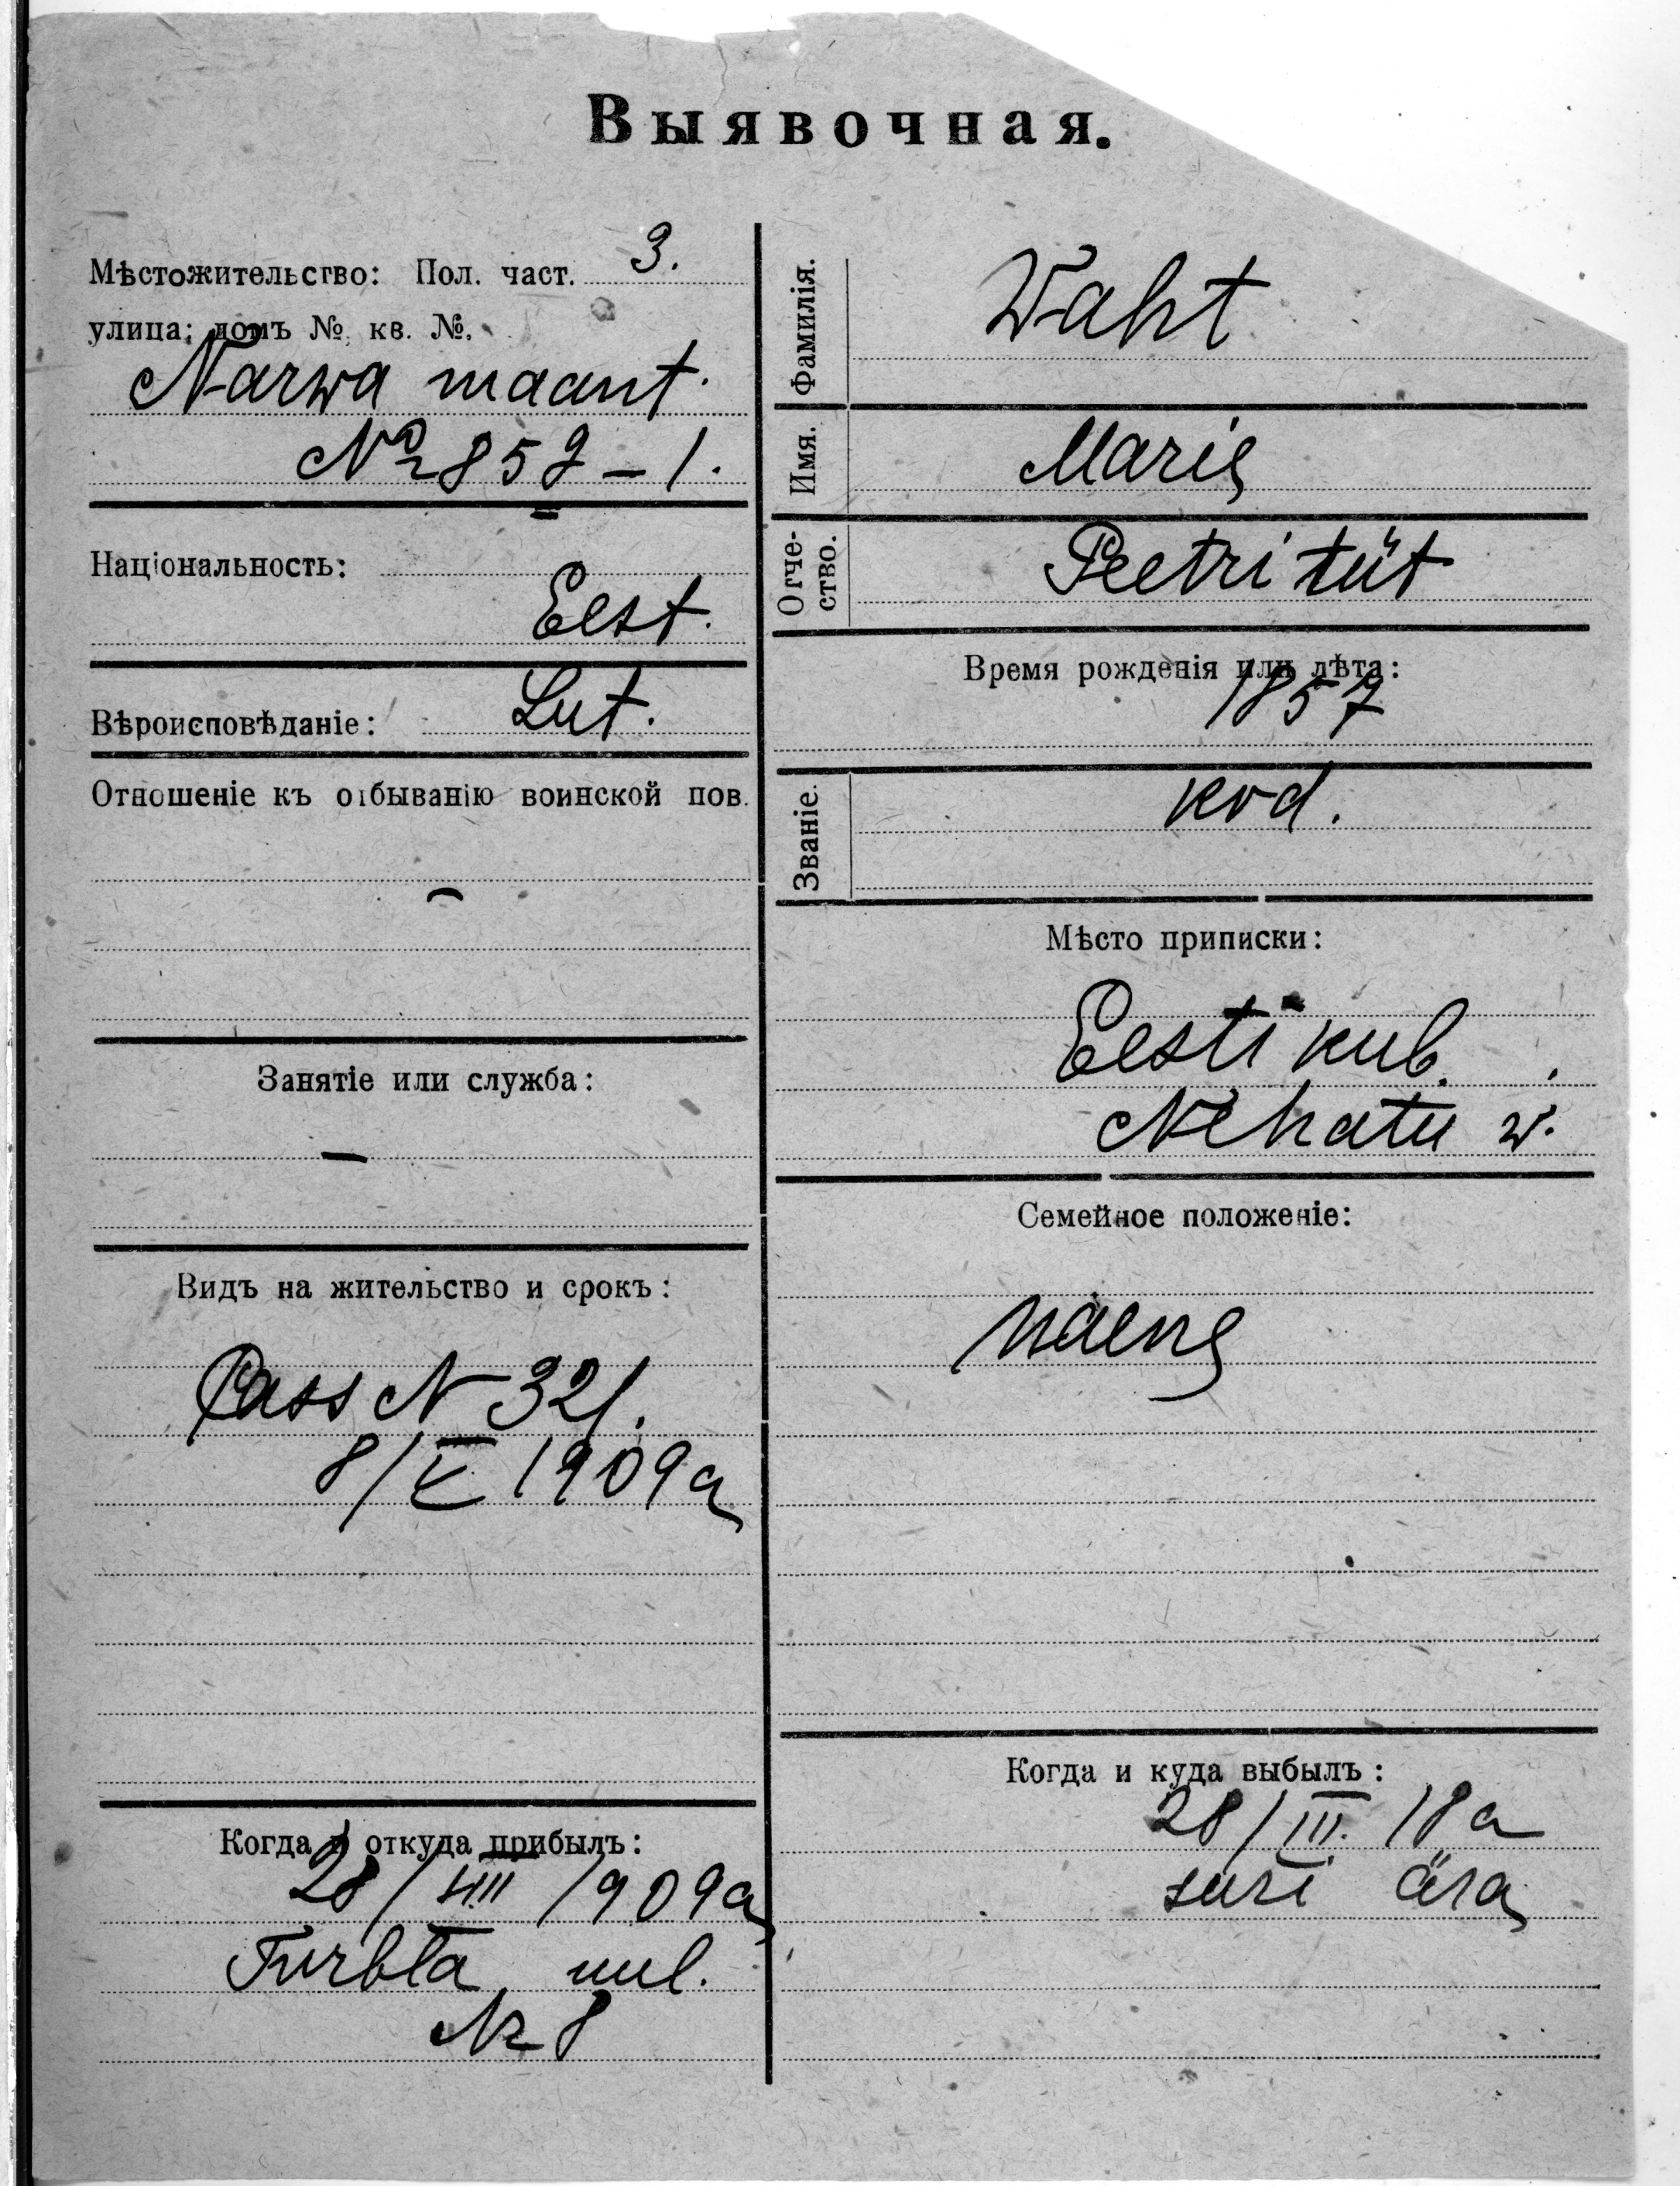 Выявочная.
Мѣстожительство: Пол. част. 3.
улица; домъ №, кв. №,
Narwa maant.
№ 852 – 1.
Національность:
Eest.
Вѣроисповѣданіе: Lut.
Отношеніе къ отбыванію воинской пов.
Занятіе или служба:
–
Видъ на жительство и срокъ:
Pass N 321.
8/V 1909a
Когда и откуда прибылъ:
28/VIII 1909a
Turbta uul.
Nr 8
Фамилія. Waht
Имя. Marie
Отчество. Peetri tüt
Время рожденія или лѣта:
1857
Званіе. kod.
Мѣсто приписки:
Eesti kub.
Nehatu w.
Семейное положеніе:
naene
Когда и куда выбылъ:
28/III. 18a
suri ära